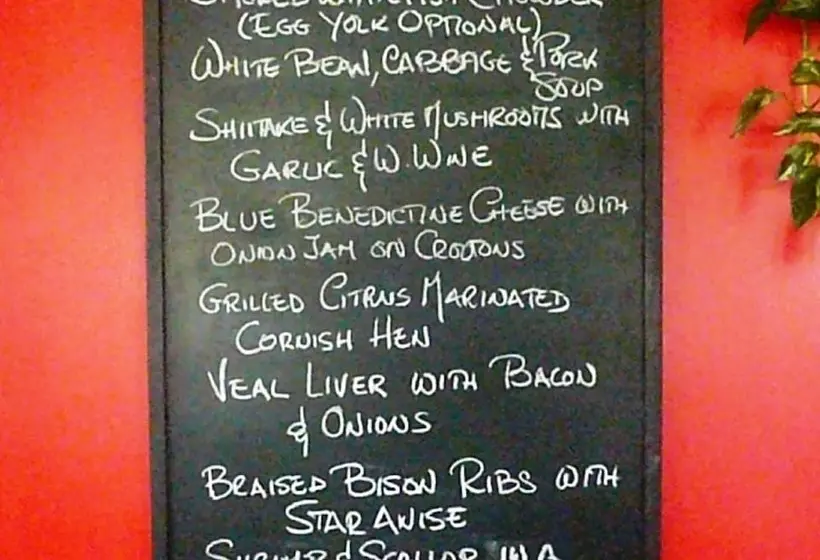 (EGG YOLK OPTIONAL)
WHITE BEAN, CABBAGE & PORK
SOUP
SHIITAKE & WHITE MUSHROOMS WITH
GARLIC & W. WINE
BLUE BENEDICTINE CHEESE WITH
ONION JAM ON CROUTONS
GRILLED CITRUS MARINATED
CORNISH HEN
VEAL LIVER WITH BACON
& ONIONS
BRAISED BISON RIBS WITH
STAR ANISE
SHRIMP & SCALLOP IN A